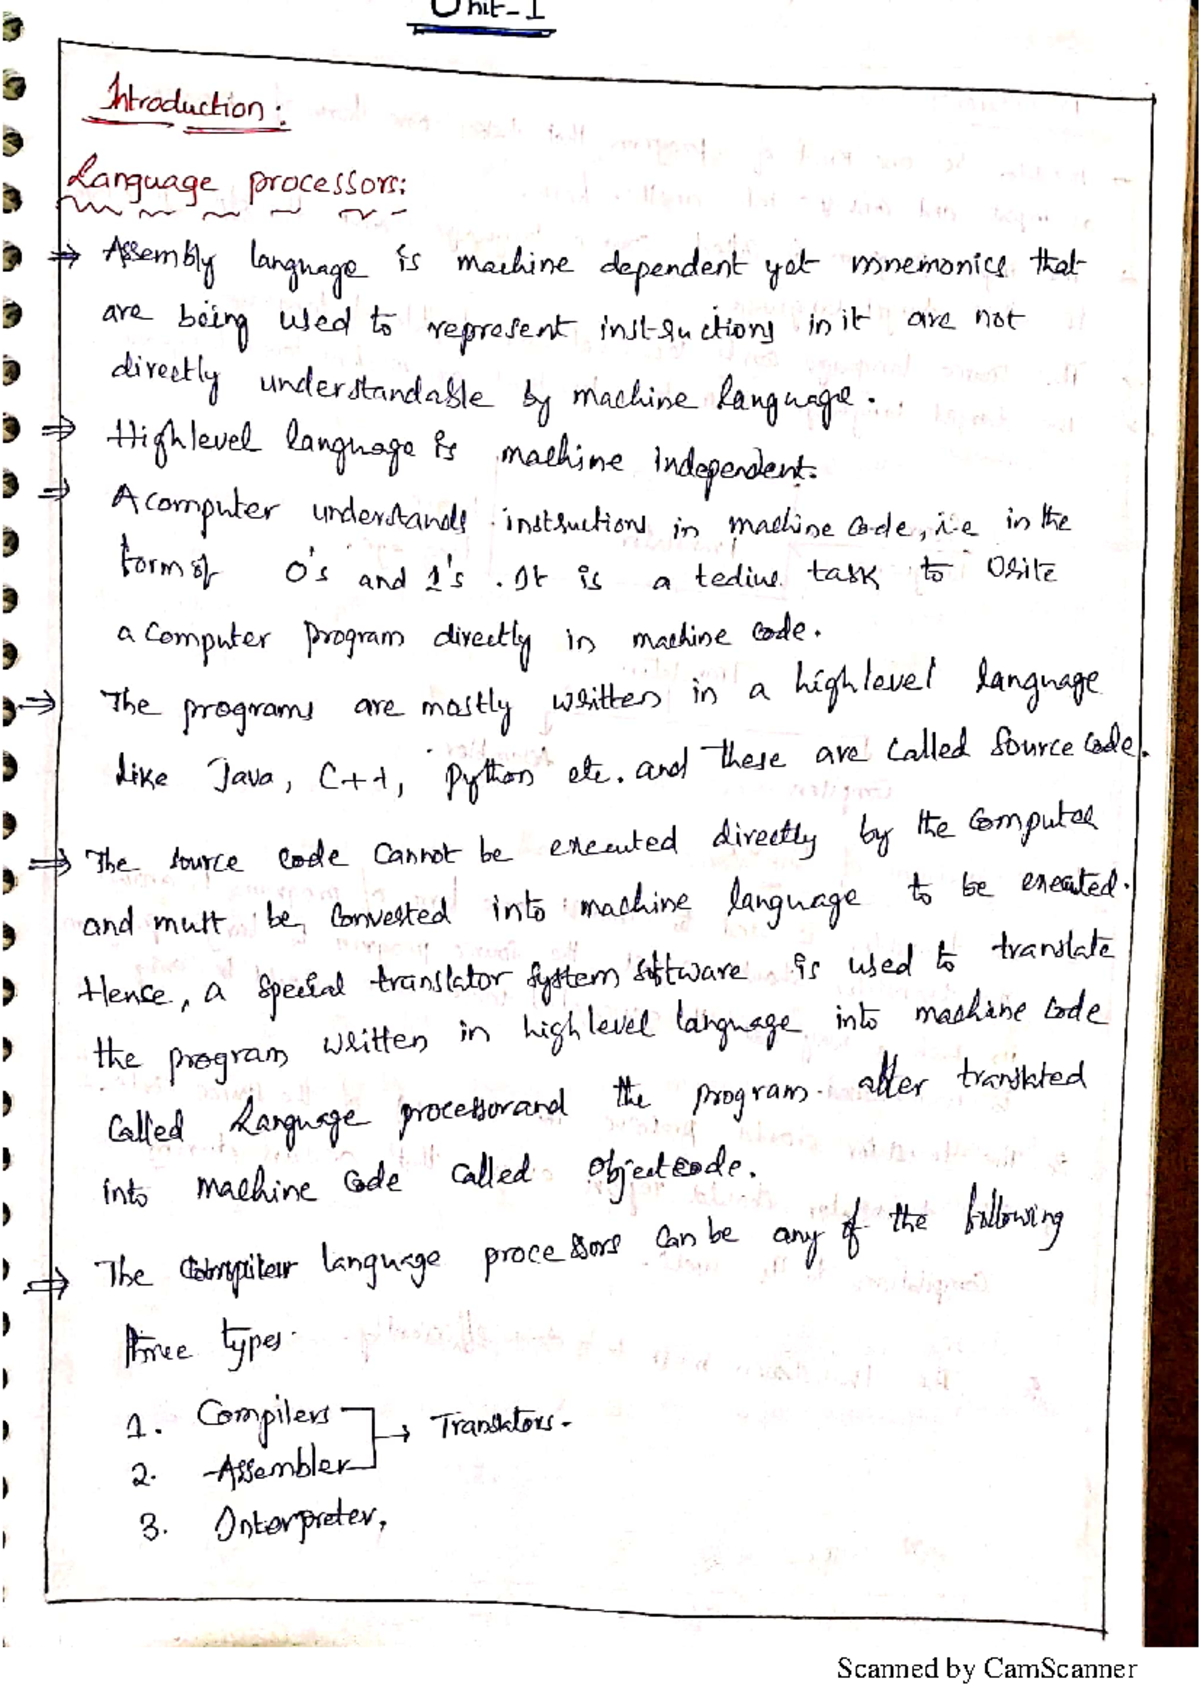 Unit-1
Introduction:
Language processors:
⇒ Assembly language is machine dependent yet mnemonics that
are being used to represent instructions in it are not
directly understandable by machine language.
⇒ High level language is machine Independent.
⇒ A computer understands instructions in machine code, i.e in the
form of 0's and 1's. It is a tedius task to write
a computer program directly in machine code.
⇒ The programs are mostly written in a high level language
like Java, C++, python etc. and these are called source code.
⇒ The source code cannot be executed directly by the computer
and must be converted into machine language to be executed.
Hence, a special translator system software is used to translate
the program written in high level language into machine code
called Language processor and the program after translated
into machine code called object code.
⇒ The language processors can be any of the following
three types.
1. Compilers
2. Assembler → Translators.
3. Interpreter.
Scanned by CamScanner